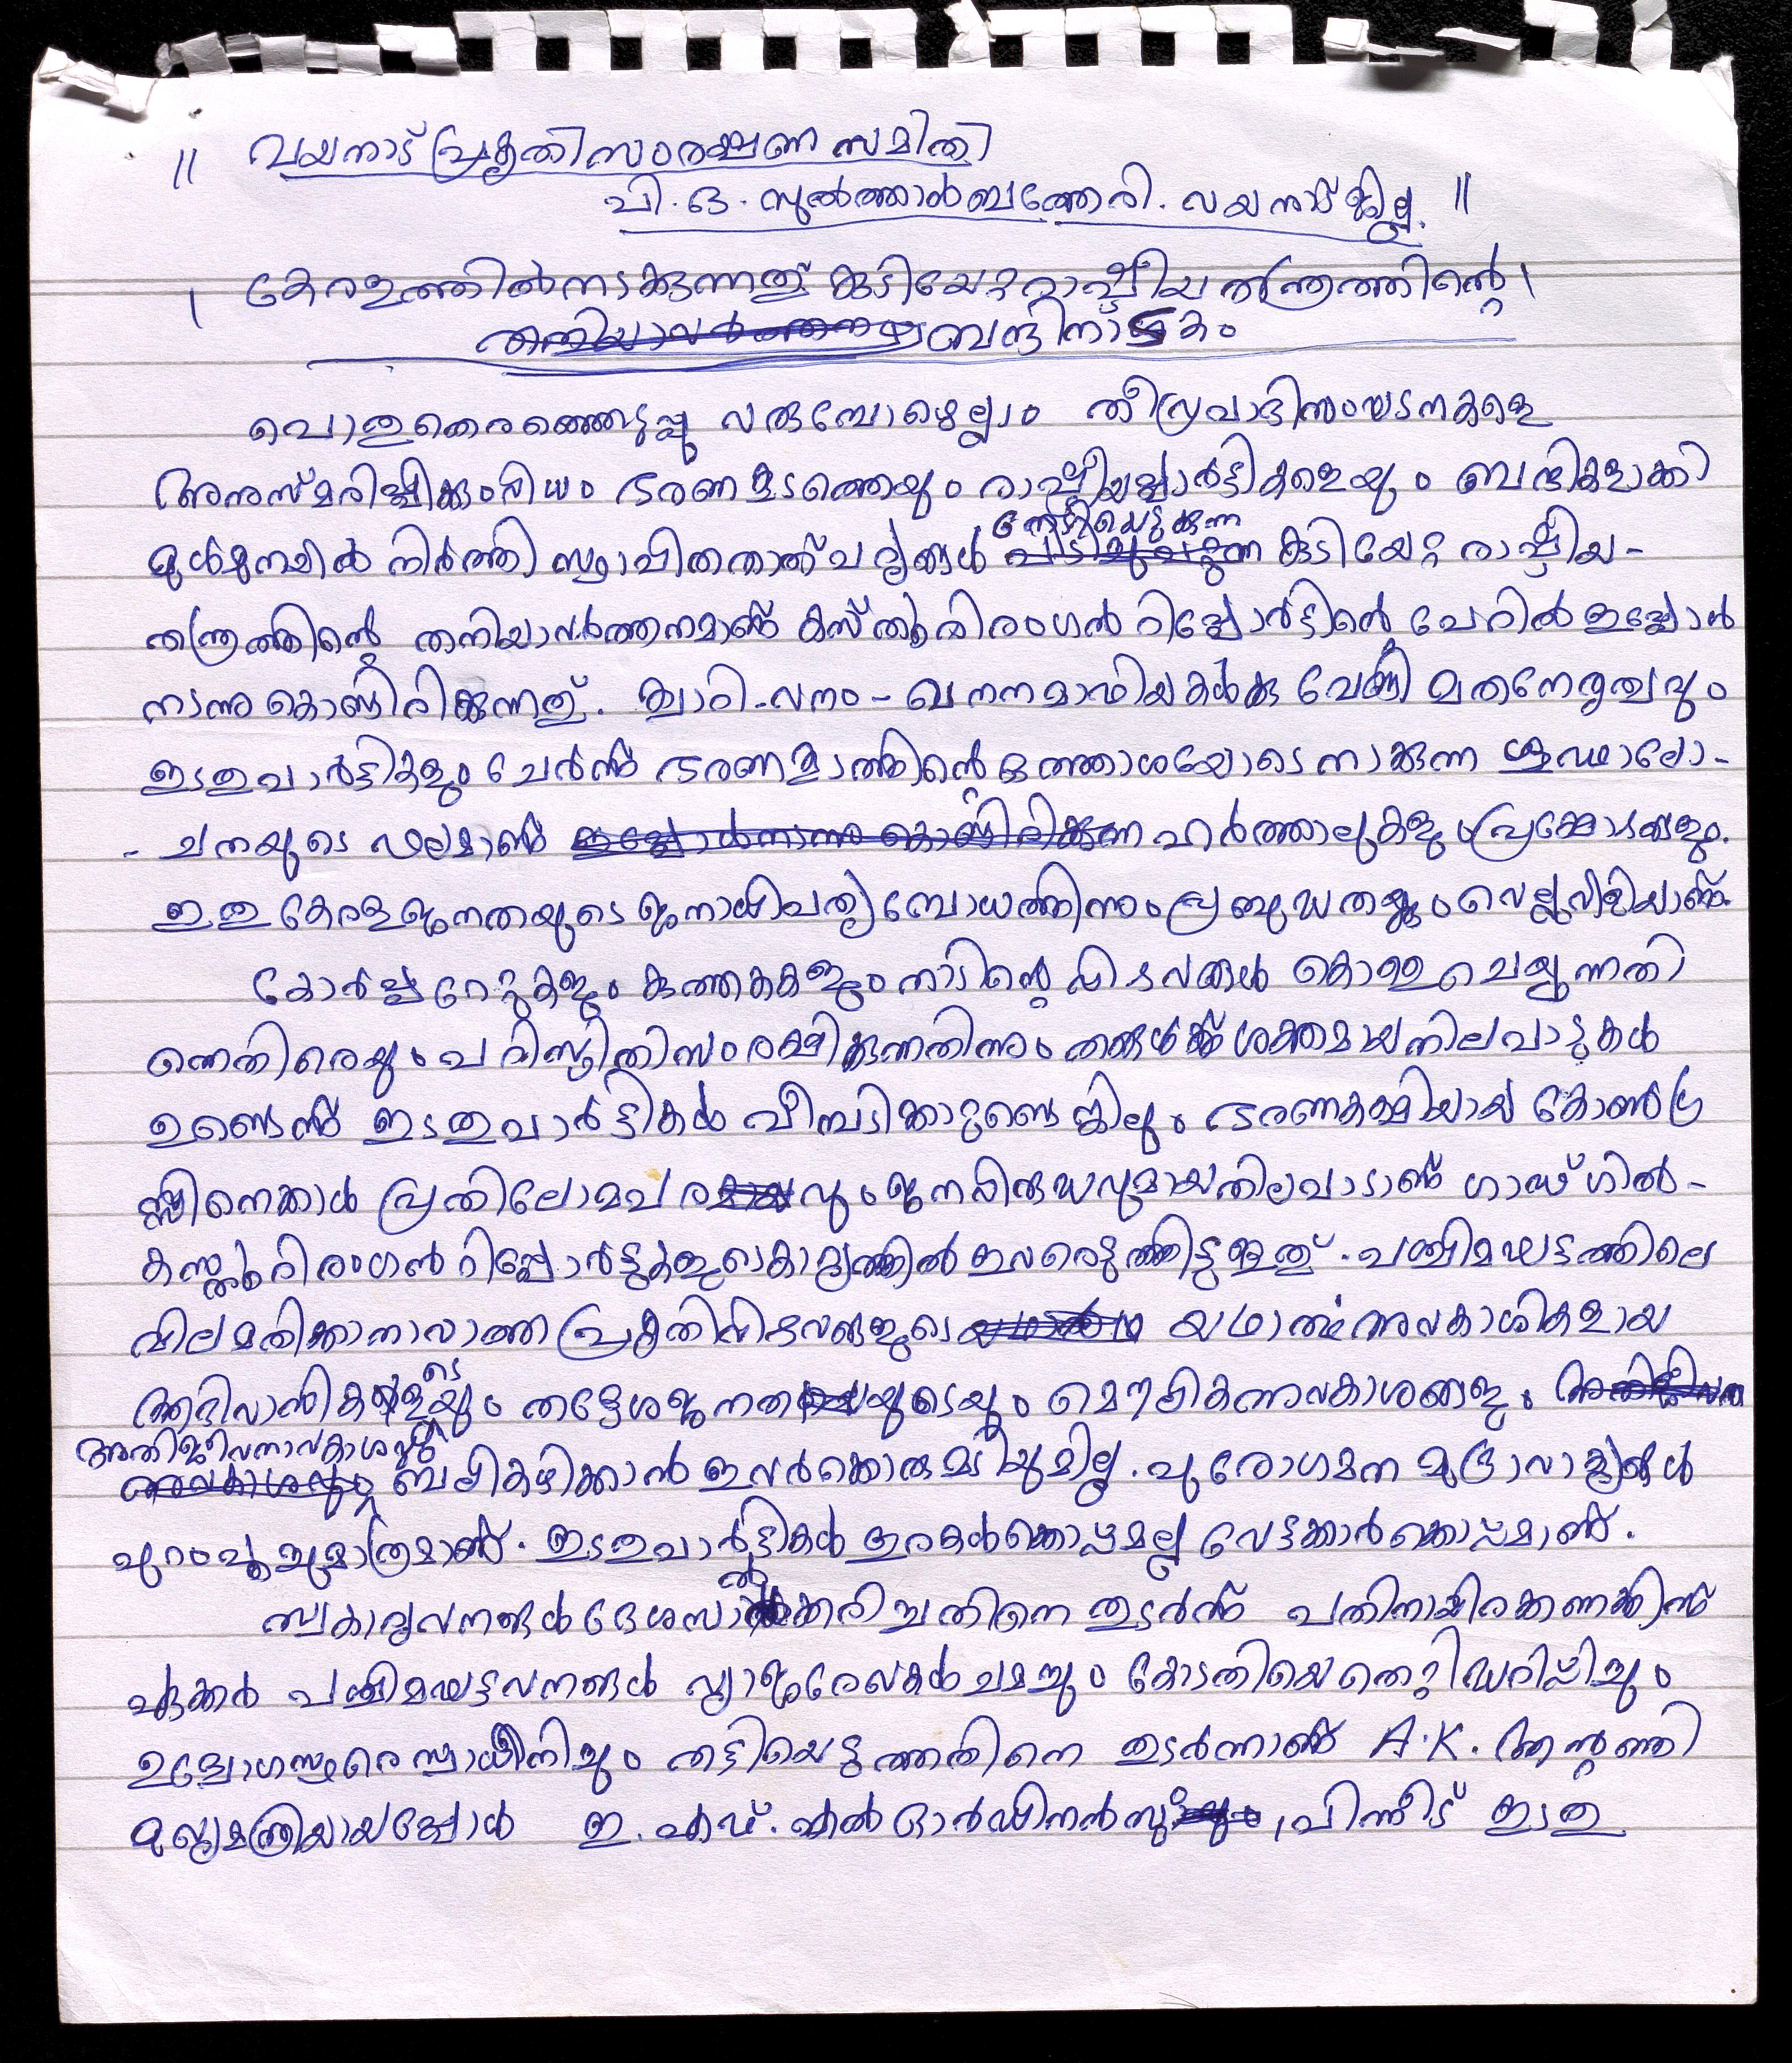 || വയനാട് പ്രകൃതി സംരക്ഷണ സമിതി
പി.ഒ. സുൽത്താൻബത്തേരി. വയനാട് ജില്ല. ||
| കേരളത്തിൽ നടക്കുന്നത് കുടിയേറ്റ രാഷ്ട്രീയ തന്ത്രത്തിന്റെ |
ബന്ദിനാടകം
പൊതുതെരഞ്ഞെടുപ്പു വരുമ്പോഴെല്ലാം തീവ്രവാദിസംഘടനകളെ
അനുസ്മരിപ്പിക്കുംവിധം ഭരണകൂടത്തെയും രാഷ്ട്രീയപ്പാർട്ടികളെയും ബന്ദികളാക്കി
മുൾമുനയിൽ നിർത്തി സ്ഥാപിതതാത്പര്യങ്ങൾ നേടിയെടുക്കുന്ന കുടിയേറ്റ രാഷ്ട്രീയ-
തന്ത്രത്തിന്റെ തനിയാവർത്തനമാണ് കസ്തൂരിരംഗൻ റിപ്പോർട്ടിന്റെ പേറിൽ ഇപ്പോൾ
നടന്നുകൊണ്ടിരിക്കുന്നത്. ക്വാറി-വനം-ഖനനമാഫിയകൾക്കു വേണ്ടി മതനേതൃത്വവും
ഇടതുപാർട്ടികളും ചേർന്ന് ഭരണകൂടത്തിന്റെ ഒത്താശയോടെ നടക്കുന്ന ഗൂഢാലോ-
-ചനയുടെ ഫലമാണ് ഹർത്താലുകളും പ്രക്ഷോഭങ്ങളും.
ഇതു കേരളജനതയുടെ ജനാധിപത്യബോധത്തിനും പ്രബുദ്ധതയ്ക്കും വെല്ലുവിളിയാണ്.
കോർപ്പറേറ്റുകളും കുത്തകകളും നാടിന്റെ വിഭവങ്ങൾ കൊള്ള ചെയ്യുന്നതി
ന്നെതിരെയും പരിസ്ഥിതിസംരക്ഷിക്കുന്നതിന്നും തങ്ങൾക്ക് ശക്തമായ നിലപാടുകൾ
ഉണ്ടെന്ന് ഇടതുപാർട്ടികൾ വീമ്പടിക്കാറുണ്ടെങ്കിലും ഭരണകക്ഷിയായ കോൺഗ്ര
സ്സിനെക്കാൾ പ്രതിലോമപരവും ജനവിരുദ്ധവുമായ നിലപാടാണ് ഗാഡ്ഗിൽ-
കസ്തൂരിരംഗൻ റിപ്പോർട്ടുകളുടെ കാര്യത്തിൽ ഇവരെടുത്തിട്ടുള്ളത്. പശ്ചിമഘട്ടത്തിലെ
വിലമതിക്കാനാവാത്ത പ്രകൃതിവിഭവങ്ങളുടെ യഥാർത്ഥ അവകാശികളായ
ആദിവാസികളുടെയും തദ്ദേശജനതയുടെയും മൌലികന്നാവകാശങ്ങളും
അതിജീവനാവകാശവും ബലികഴിക്കാൻ ഇവർക്കൊരു മടിയുമില്ല. പുരോഗമന മുദ്രാവാക്യങ്ങൾ
പുറംപൂച്ചുമാത്രമാണ്. ഇടതുപാർട്ടികൾ ഇരകൾക്കൊപ്പമല്ല വേട്ടക്കാർക്കൊപ്പമാണ്.
സ്വകാര്യവനങ്ങൾ ദേശസാത്ക്കരിച്ചതിനെ തുടർന്ന് പതിനായിരക്കണക്കിന്
ഏക്കർ പശ്ചിമഘട്ടവനങ്ങൾ വ്യാജരേഖകൾ ചമച്ചും കോടതിയെ തെറ്റിദ്ധരിപ്പിച്ചും
ഉദ്യോഗസ്ഥരെ സ്വാധീനിച്ചും തട്ടിയെടുത്തതിനെ തുടർന്നാണ് A.K. ആന്റണി
മുഖ്യമന്ത്രിയായപ്പോൾ ഇ.എഫ്.എൽ ഓർഡിനൻസും, പിന്നീട് ഇടതു